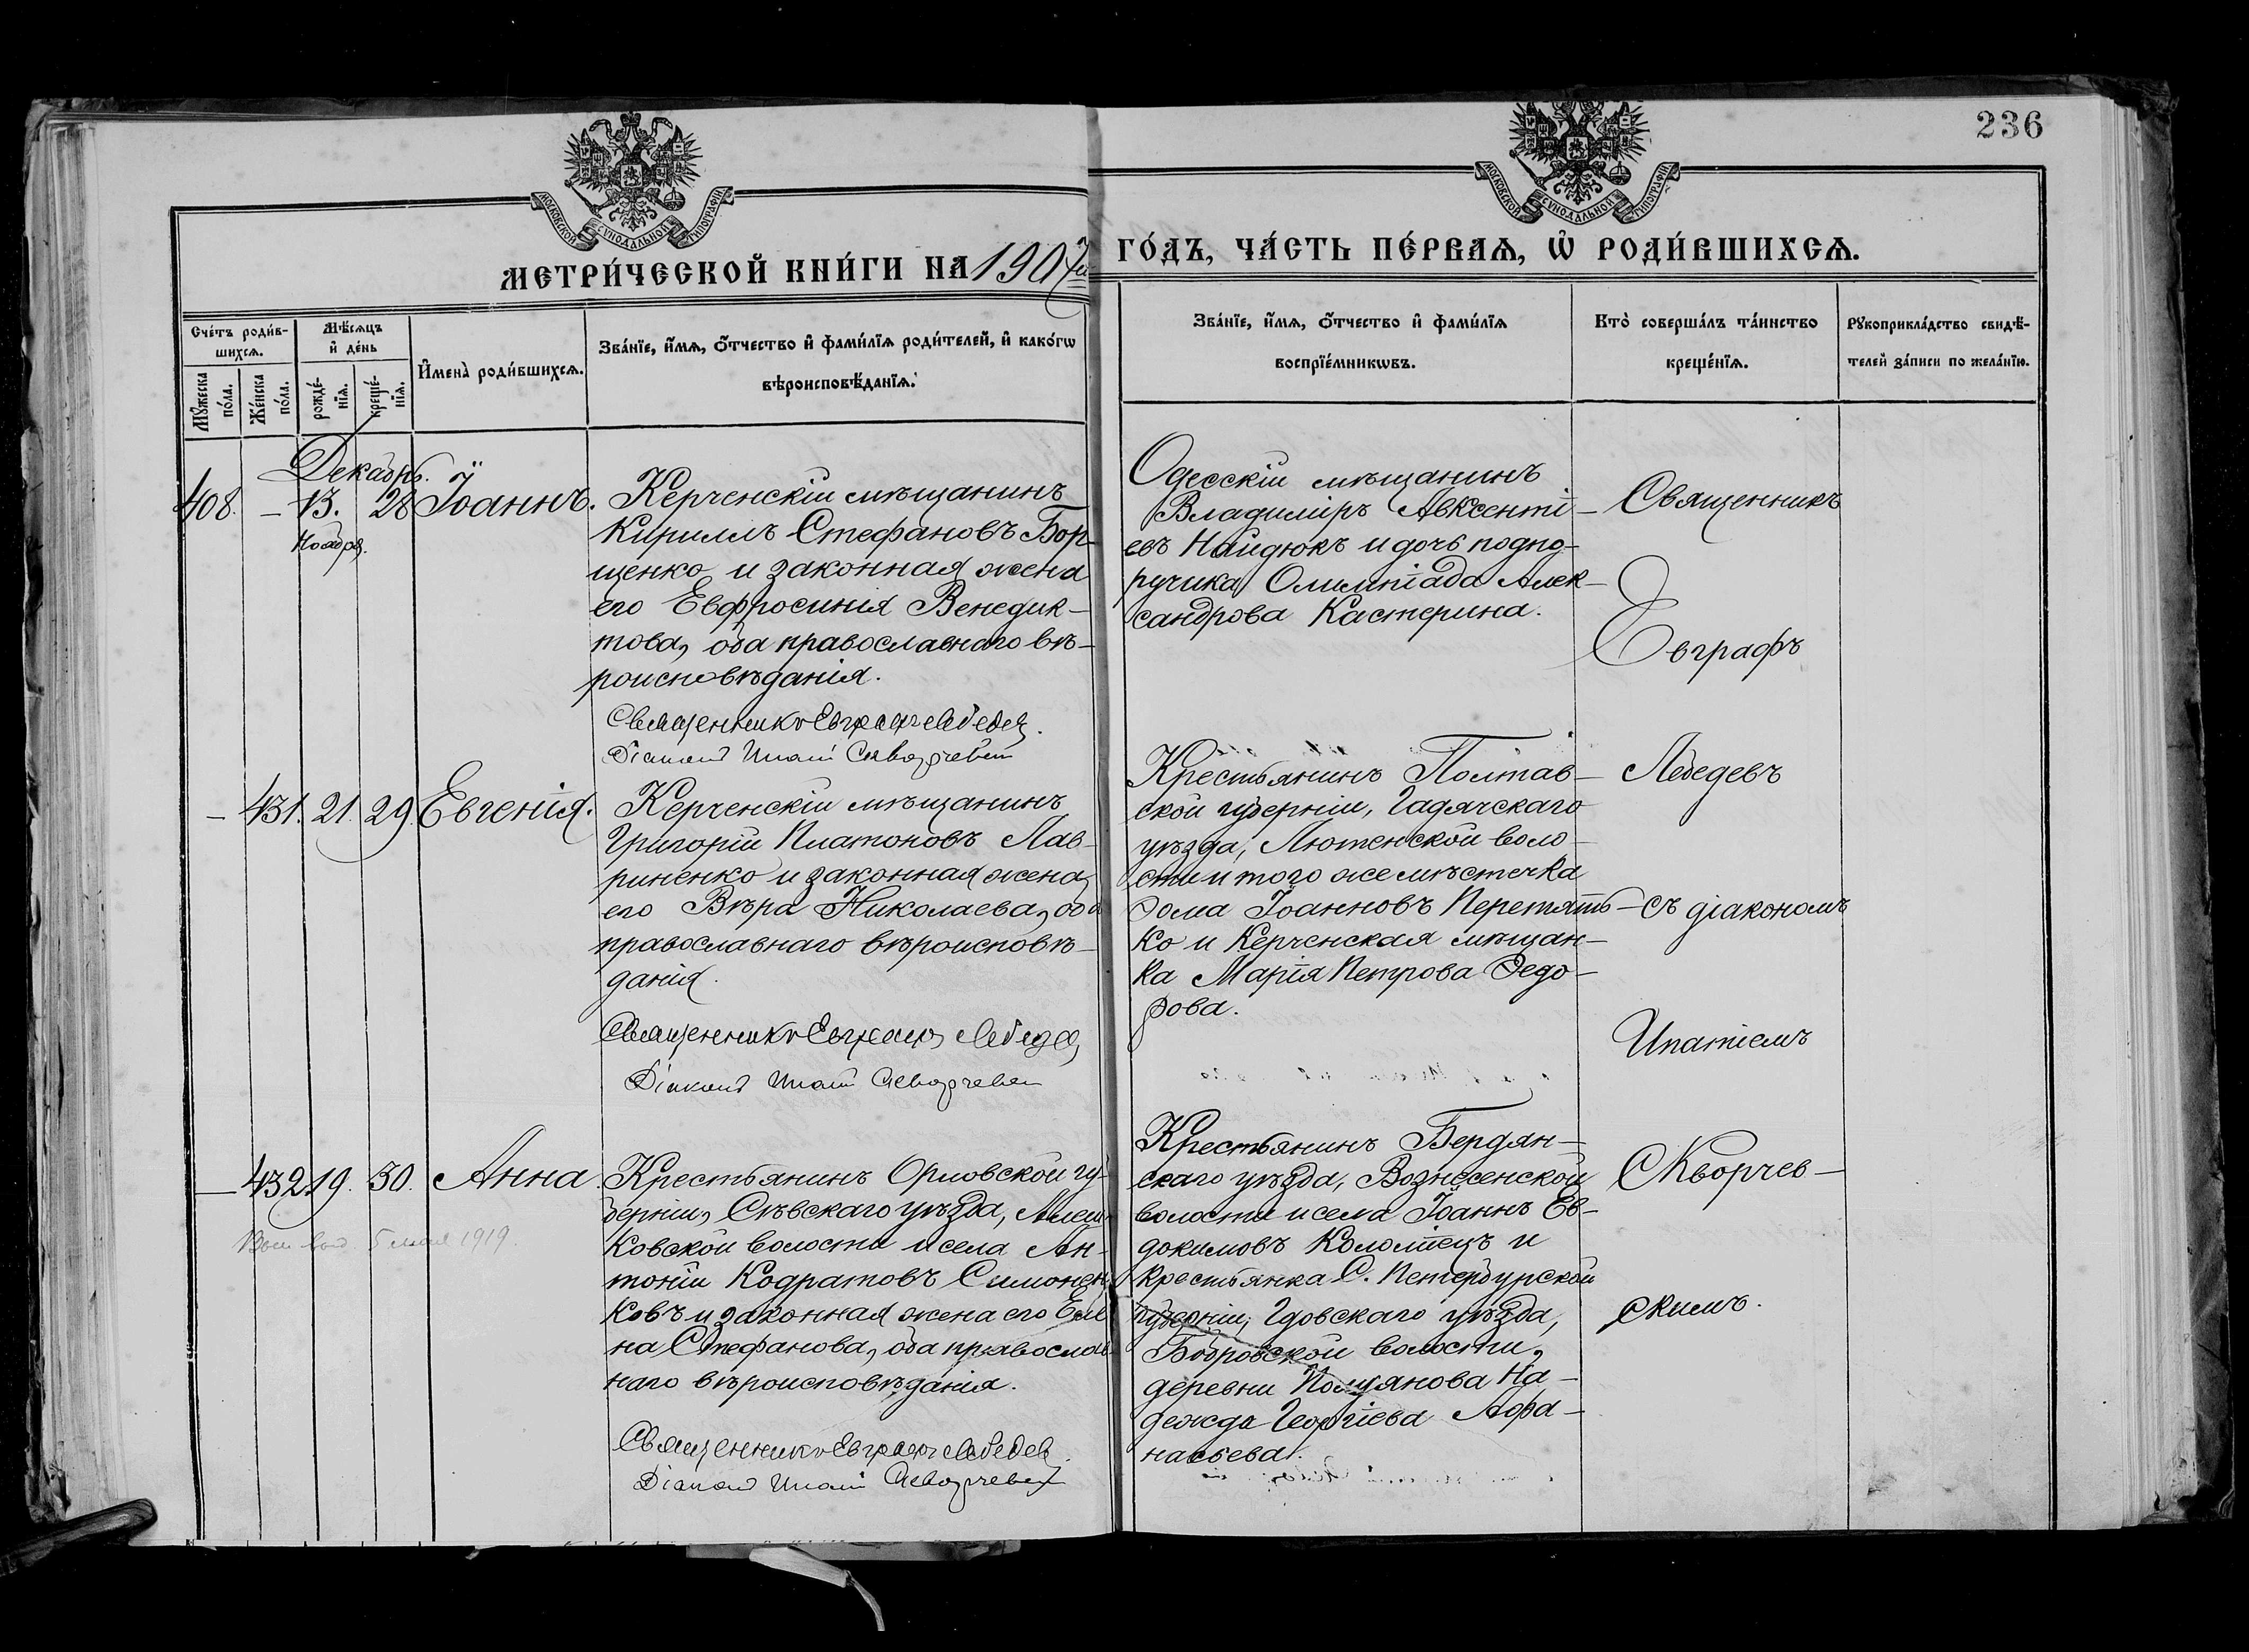 236
МОСКОВСКОЙ СѴНОДАЛЬНОЙ ТИПОГРАФІИ
МОСКОВСКОЙ СѴНОДАЛЬНОЙ ТИПОГРАФІИ
МЕТРИ́ЧЕСКОЙ КНИ́ГИ НА 1907й ГО́ДЪ, ЧА́СТЬ ПЕ́РВАѦ, Ѡ҆ РОДИ́ВШИХСѦ.
Сче́тъ роди́в-
шихсѧ.
Мѣ́сѧцъ
и҆ де́нь
Мꙋ́жеска
по́ла.
Же́нска
по́ла.
рожде́-
нїѧ.
креще́-
нїѧ.
И҆мена̀ роди́вшихсѧ.
Зва́нїе, и҆́мѧ, ѻ҆́тчество и҆ фамі́лїѧ роди́телей, и҆ како́гѡ
вѣроисповѣ́данїѧ.
Зва́нїе, и҆́мѧ, ѻ҆́тчество и҆ фамі́лїѧ
воспрїе́мникѡвъ.
Кто̀ соверша́лъ та́инство
креще́нїѧ.
Рꙋкоприкла́дство свидѣ́-
телей за́писи по жела́нїю.
Декабрь.
408. – 13. 28 Іоаннъ.
Ноября.
Керченскій мѣщанинъ
Кириллъ Стефановъ Бор-
щенко и законная жена
его Евфросинія Венедик-
това, оба православнаго вѣ-
роисповѣданія.
Священникъ Евграфъ Лебедев.
Діаконъ Ипатій Скворчевскій
Одесскій мѣщанинъ
Владиміръ Авксенті-
евъ Найдюкъ и дочь подпо-
ручика Олимпіада Алек-
сандрова Кастерина.
Священникъ
Евграфъ
– 431. 21. 29. Евгенія.
Керченскій мѣщанинъ
Григорій Платоновъ Лав-
риненко и законная жена
его Вѣра Николаева, оба
православнаго вѣроисповѣ-
данія.
Священникъ Евграфъ Лебедев
Діаконъ Ипатій Скворчевскій
Крестьянинъ Полтав-
ской губерніи, Гадячскаго
уѣзда, Лютенской воло-
сти и того же мѣстечка
Ѳома Іоанновъ Перетять-
ко и Керченская мѣщан-
ка Марія Петрова Ѳедо-
рова.
Лебедевъ
съ діакономъ
Ипатіемъ
– 432 19. 30. Анна.
5 мая 1919.
Крестьянинъ Орловской гу-
берніи, Сѣвскаго уѣзда, Алеш-
ковской волости и села Ан-
тоній Кодратовъ Симонен-
ковъ и законная жена его Еле-
на Стефанова, оба православ-
наго вѣроисповѣданія.
Священникъ Евграфъ Лебедев.
Діаконъ Ипатій Скворчевскій
Крестьянинъ Бердян-
скаго уѣзда, Вознесенской
волости и села Іоаннъ Ев-
докимовъ Коломіецъ и
крестьянка С. Петербурской
губерніи, Гдовскаго уѣзда,
Бобровской волости,
деревни На-
дежда Георгіева Афа-
насьева.
Скворчев-
скимъ.